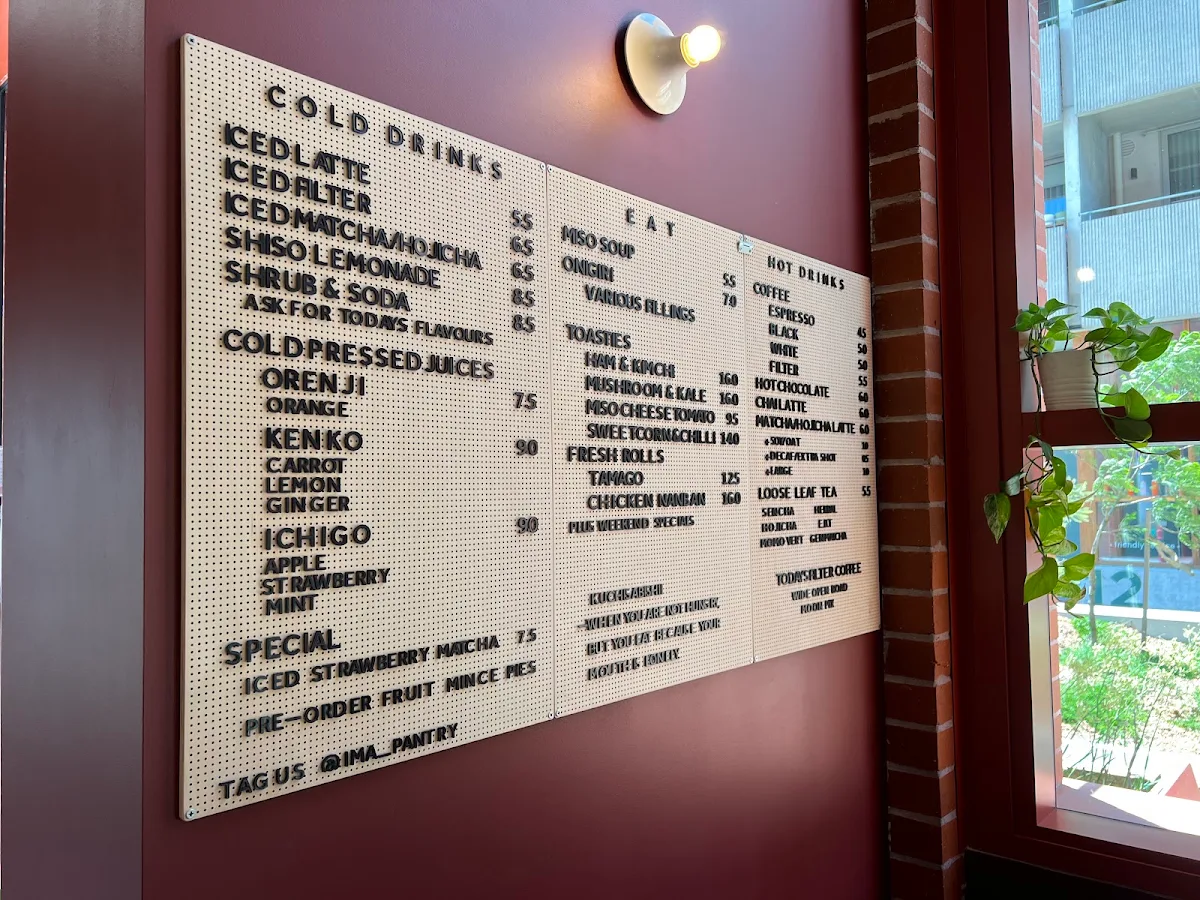 COLD DRINKS
ICED LATTE 55
ICED FILTER 65
ICED MATCHA/HOJICHA 65
SHISO LEMONADE 85
SHRUB & SODA 85
ASK FOR TODAYS FLAVOURS
COLD PRESSED JUICES
ORENJI 75
ORANGE
KENKO 90
CARROT
LEMON
GINGER
ICHIGO 90
APPLE
STRAWBERRY
MINT
SPECIAL
ICED STRAWBERRY MATCHA 75
PRE-ORDER FRUIT MINCE PIES
TAG US @IMA_PANTRY
EAT
MISO SOUP 55
ONIGIRI 70
VARIOUS FILLINGS
TOASTIES
HAM & KIMCHI 160
MUSHROOM & KALE 160
MISO CHEESE TOMATO 95
SWEETCORN&CHILLI 140
FRESH ROLLS
TAMAGO 125
CHICKEN NANBAN 160
PLUS WEEKEND SPECIALS
KUCHISABISHI
-WHEN YOU ARE NOT HUNGRY,
BUT YOU EAT BECAUSE YOUR
MOUTH IS LONELY.
HOT DRINKS
COFFEE
ESPRESSO 45
BLACK 50
WHITE 50
FILTER 55
HOT CHOCOLATE 60
CHAI LATTE 60
MATCHA/HOJICHA LATTE 60
+SOY/OAT 10
+DECAF/EXTRA SHOT 05
+LARGE 10
LOOSE LEAF TEA 55
SENCHA HERBAL
HOJICHA E.B.T
MOMO VERT GENMAICHA
TODAYS FILTER COFFEE
WIDE OPEN ROAD
friendly
12